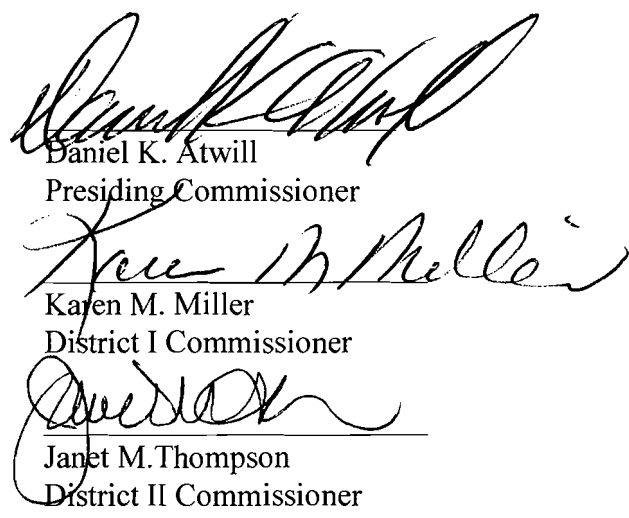 Daniel K. Atwill
Presiding Commissioner
Karen M Miller
Karen M. Miller
District I Commissioner
Janet M.Thompson
District II Commissioner